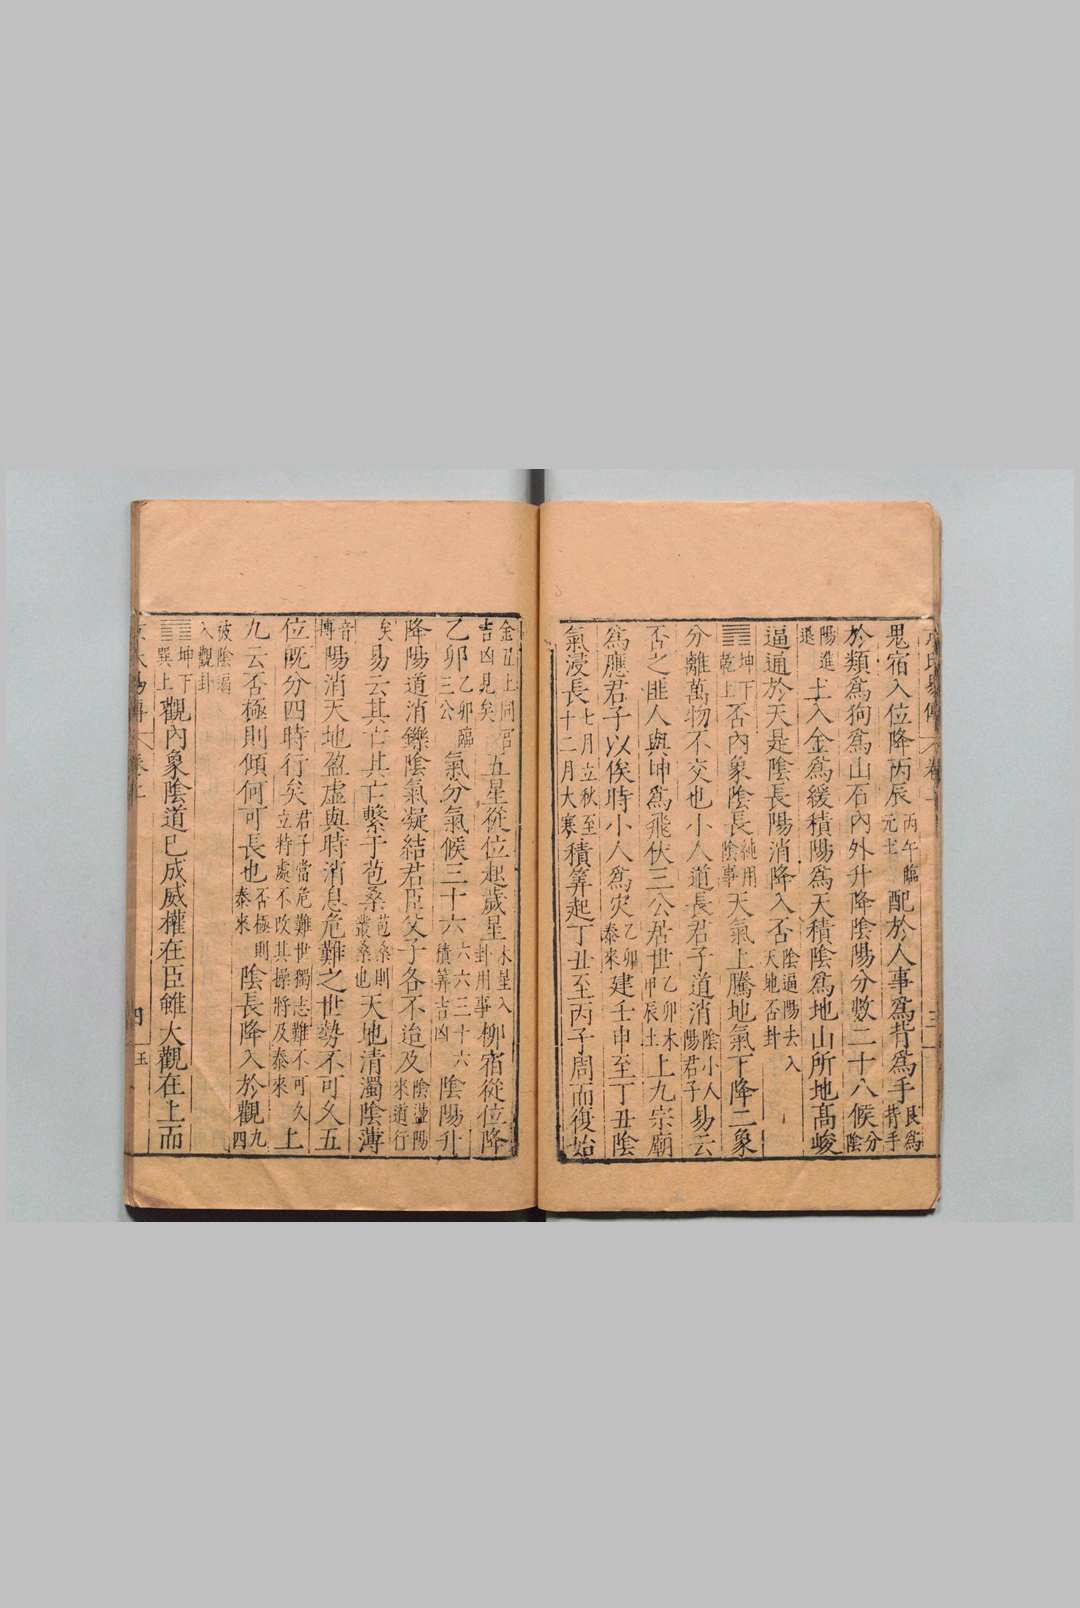 鬼宿入位降丙辰丙午臨元士配於人事爲背爲手艮爲背手
於類爲狗爲山石內外升降陰陽分數二十八候分陰
陽進退土入金爲緩積陽爲天積陰爲地山所地髙峻
逼通於天是陰長陽消降入否陰逼陽去入天地否卦
䷋坤下乾上否內象陰長純用陰事天氣上騰地氣下降二象
分離萬物不交也小人道長君子道消陰小人陽君子易云
否之匪人與坤爲飛伏三公居世乙卯木甲辰土上九宗廟
爲應君子以俟時小人爲灾乙卯泰來建壬申至丁丑陰
氣浸長七月立秋至十二月大寒積筭起丁丑至丙子周而復始
金丑上同宮吉凶見矣五星從位起歲星木星入卦用事柳宿從位降
乙卯乙卯臨三公氣分氣候三十六六六三十六積筭吉凶陰陽升
降陽道消鑠陰氣凝結君臣父子各不迨及陰蕩陽來道行
矣易云其亡其亡繫于苞桑苞桑則叢桑也天地清濁陰薄
音博陽消天地盈虛與時消息危難之世勢不可久五
位旣分四時行矣君子當危難世獨志難不可久立特處不改其操將及泰來上
九云否極則傾何可長也否極則泰來陰長降入於觀九四
被陰逼入觀卦
䷓坤下巽上觀內象陰道已成威權在臣雖大觀在上而